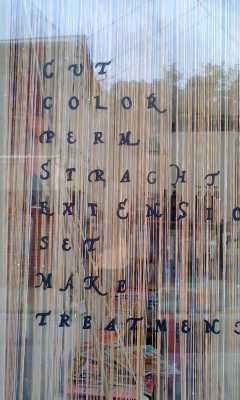 CUT
COLOR
PERM
STRAGHT
EXTENSIO
SET
MAKE
TREATMENS